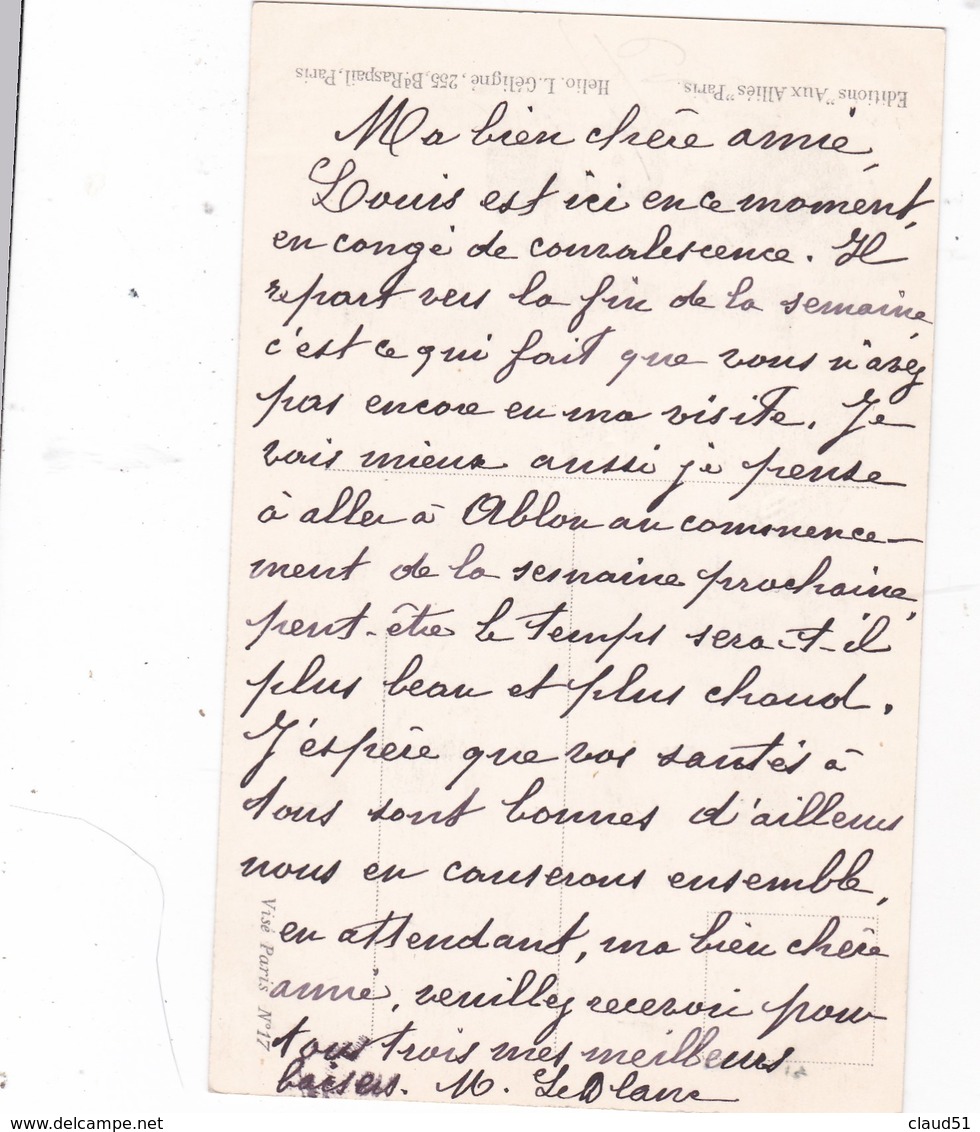 Editions "Aux Alliés" Paris.
Helio. L. Géligné, 255, Bd Raspail, Paris
Ma bien chère amie,
Louis est ici en ce moment,
en congé de convalescence. Il
repart vers la fin de la semaine,
c'est ce qui fait que vous n'avez
pas encore eu ma visite. Je
vais mieux aussi je pense
à aller à Ablon au commence-
ment de la semaine prochaine,
peut-être le temps sera-t-il
plus beau et plus chaud.
J'espère que vos santés à
tous sont bonnes d'ailleurs
nous en causerons ensemble,
en attendant, ma bien chère
amie, veuillez recevoir pour
tous trois mes meilleurs
baisers. M. LeBlanc
Visé Paris N° 17
claud51